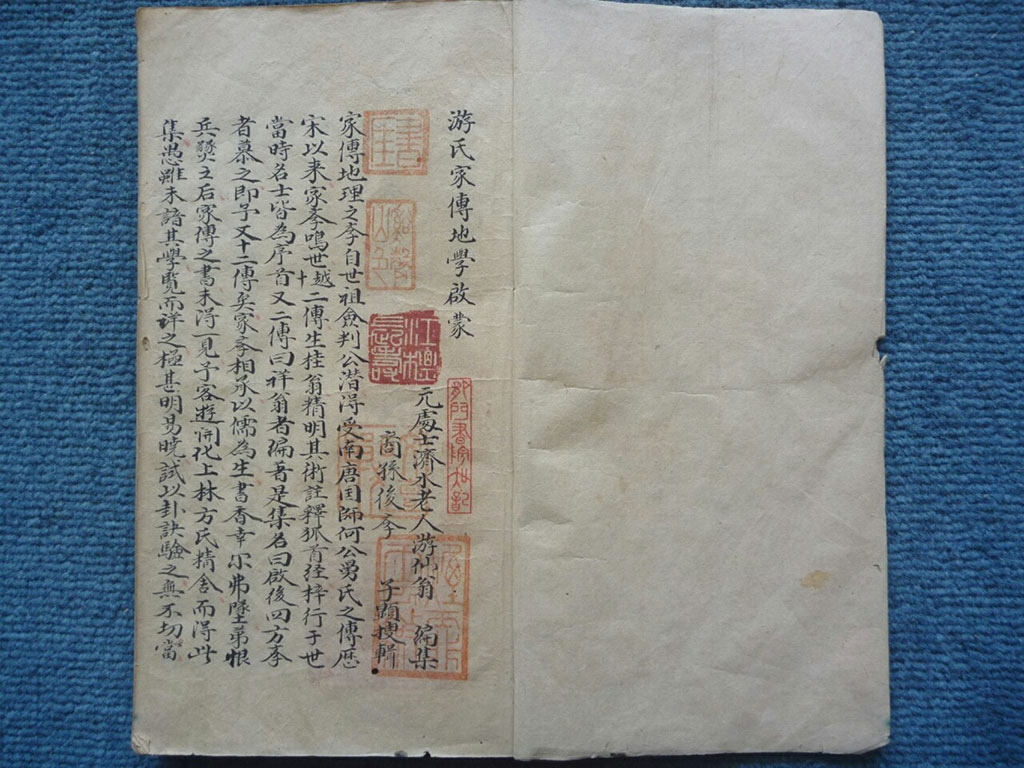 游氏家傳地學啟蒙
元處士濟水老人游仙翁 編集
裔孫後李 子顯搜輯
家傳地理之李自世祖僉判公潛得受南唐囯師何公㝵氏之傳歷
宋以來家李鳴世越十二傳生桂翁精明其術註釋狐首经梓行于世
當時名士皆為序首又二傳曰祥翁者编著是集名曰啟後四方李
者慕之即予又十二傳矣家李相承以儒為生書香幸尔弗墜第恨
兵燹之后家傳之書未得一見予客遊開化上林方氏精舍而得此
集愚雖未諳其學覽而詳之極甚明昜曉試以卦訣驗之無不切當